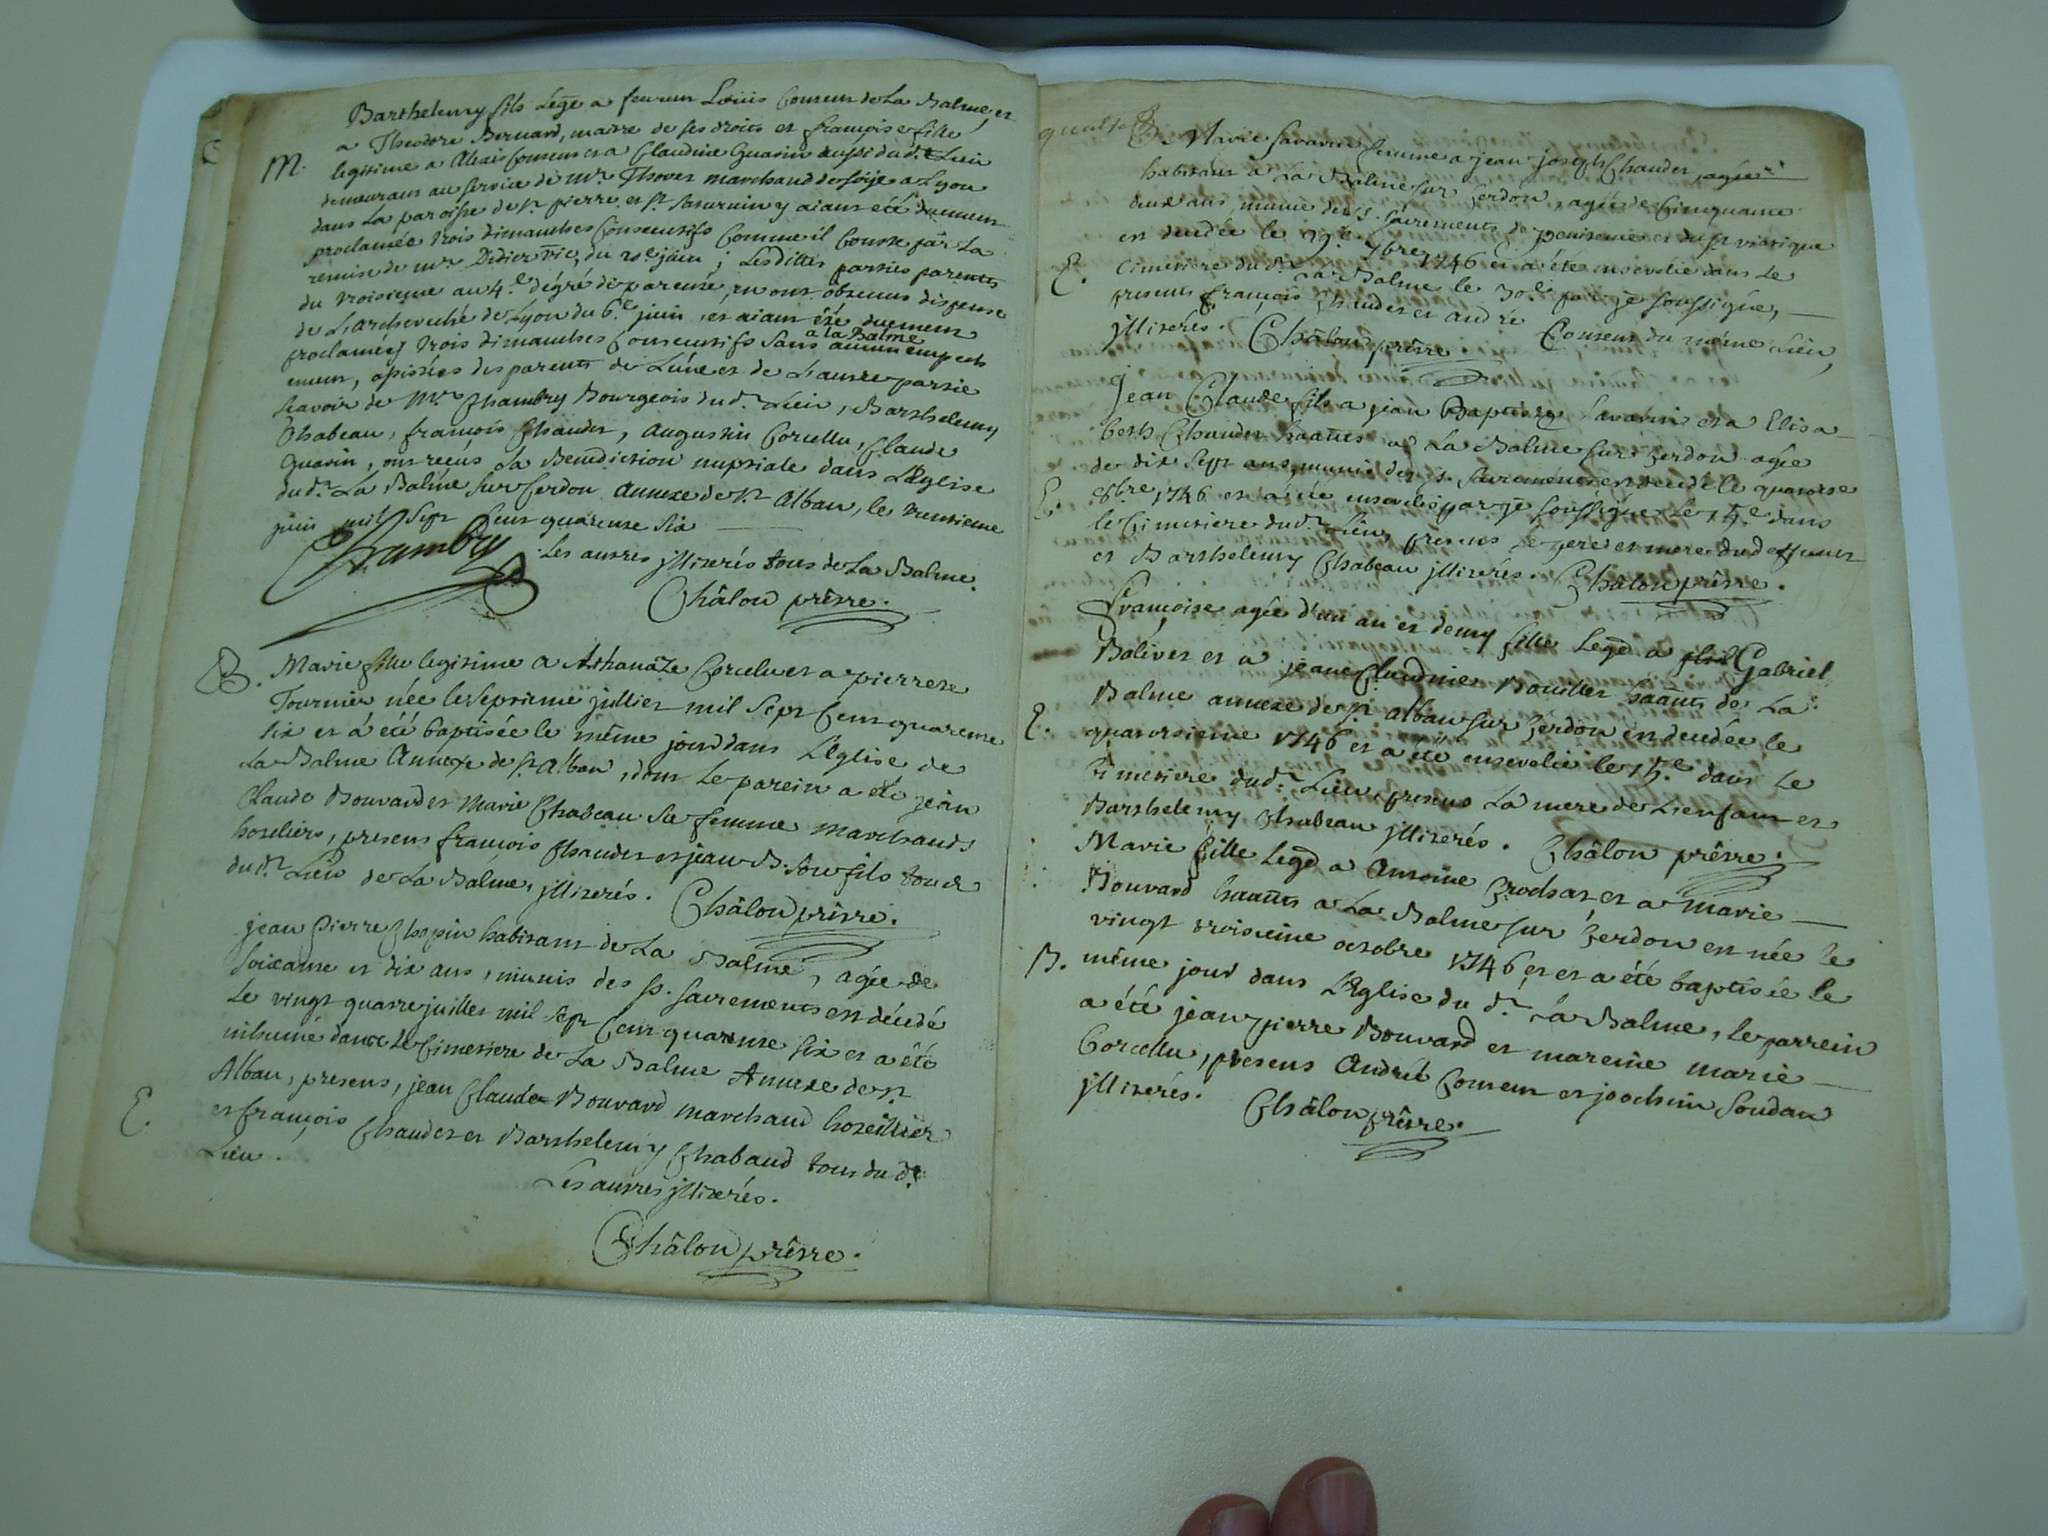 Barthelemy fils Lege a feu Louis Couneur de La Balme, et
a Theodore Bernard, maitre de ses droits et françoise fille
M. legitime a Couneur et a Claudine Guarin aussi du dt. Lieu
demeurant au service de Mr. Thover marchand de soÿe a Lyon
dans La paroisse de st. pierre et st. Saturnin y aiant été duemen
proclamée trois dimanches Consecutifs Comme il Conste par La
remise de mr. Didier vic, du juin ; Lesdittes parties parents
du troisieme au 4.e dégré de parenté, en ont obtenus dispense
de L'archeveché de Lyon du 6.e juin, et aiant été duement
a la Balme
proclamées trois dimanches Consecutifs sans aucun empech
ement, assistées des parents de L'une et de L'autre partie
scavoir de Mr. Chambry Bourgeois du dt. Lieu, Barthelemy
Chabeau, françois Chaudet, augustin Corcellu, Claude
Guarin, ont reçus La Benediction nuptiale dans L'Eglise
du dt. La Balme sur Cerdon annexe de st. Alban, le trentieme
juin mil sept Cent quarente six
Chambry Les autres jlliterés tous de La Balme.
Châlon prêtre.
B. Marie fille legitime a Athanaze Corcelu et a pierrete
Tournier née le septieme jullier mil sept Cent quarente
six et a été baptisée le même jour dans L'Eglise de
La Balme Annexe de st. Alban, dont Le parein a été jean
Claude Bouvard et Marie Chabeau sa femme marchands
hoteliers, presens françois Chaudet et jean B. son fils tous
du dt. Lieu de La Balme, jlliterés. Châlon prêtre.
jean pierre Chopin habitant de La Balme, agée de
soixante et dix ans, munis des st. sacrements est décédé
Le vingt quatre juillet mil sept Cent quarente six et a été
inhumé dans Le Cimetiere de La Balme Annexe de st.
Alban, presens, jean Claude Bouvard marchand hotellier
E. et françois Chaudet et Barthelemy Chabaud tous du dt.
Lieu.
Les autres jlliterés.
Châlon prêtre.
Marie Savarin femme a jean joseph Chaudet, agée
habitant a La Balme sur Cerdon, agée de Cinquante
deux ans, munie des s. sacrements de penitence et du st viatique
est decedée le 29.e 7bre 1746 et a été ensevelie dans Le
E. Cimetiere du dt. La Balme le 30.e par je soussigné,
presents françois Chaudet et andré Couneur du même Lieu,
jlliterés. Châlon prêtre
jean Claude fils a jean Baptiste Savarin et a Elisa
beth Chaudet haants a La Balme sur Cerdon agée
de dix sept ans, munis des s. sacrements est decedé le quatorze
E. 8bre 1746 et a été enseveli par je soussigné Le 15.e dans
le Cimetiere du dt. Lieu, presens le pere et mere dud effunct
et Barthelemy Chabeau jlliterés. Châlon prêtre.
Françoise agée d'un an et demy fille Lege a Gabriel
Balivet et a jeane Claudine Bouiller haants de La
Balme annexe de st. alban sur Cerdon est decedée le
E. quatorsieme 1746 et a été ensevelie le 15.e dans Le
Cimetiere du dt. Lieu, presens La mere de L'enfant et
Barthelemy Chabeau jlliterés. Châlon prêtre.
Marie fille Lege a Antoine Crochat et a Marie
Bouvard haants a La Balme sur Cerdon est née le
vingt troisieme octobre 1746 et et a été baptisée le
B. même jour dans L'Eglise du dt. La Balme, le parrein
a été jean pierre Bouvard et mareine marie
Corcellu, presens André Couneur et joachim Soudan
jlliterés. Châlon prêtre.